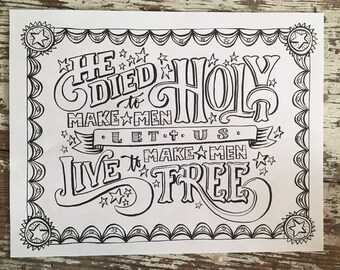 HE DIED
to HOLY
MAKE MEN
LET US
LIVE to MAKE MEN
FREE